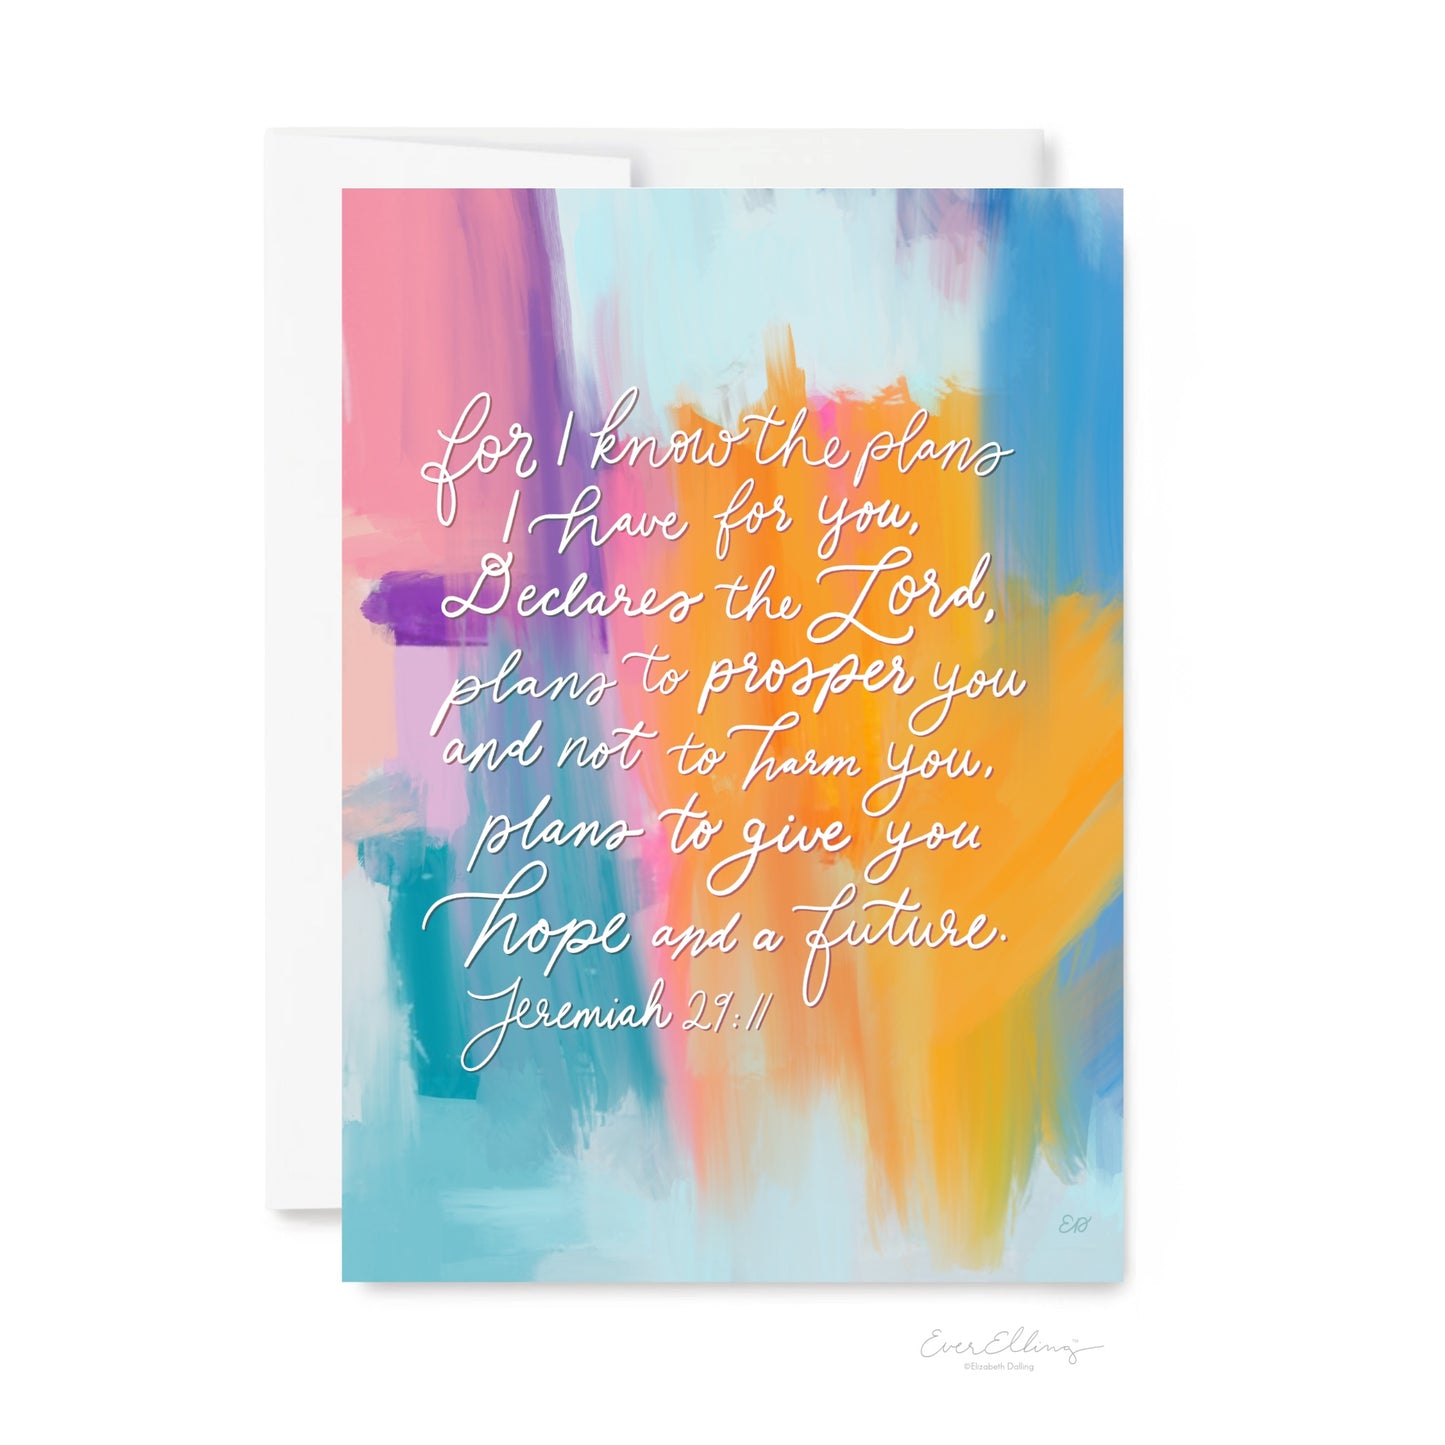 for I know the plans
I have for you,
Declares the Lord,
plans to prosper you
and not to harm you,
plans to give you
hope and a future.
Jeremiah 29:11
ED
EverElling™
©Elizabeth Dalling